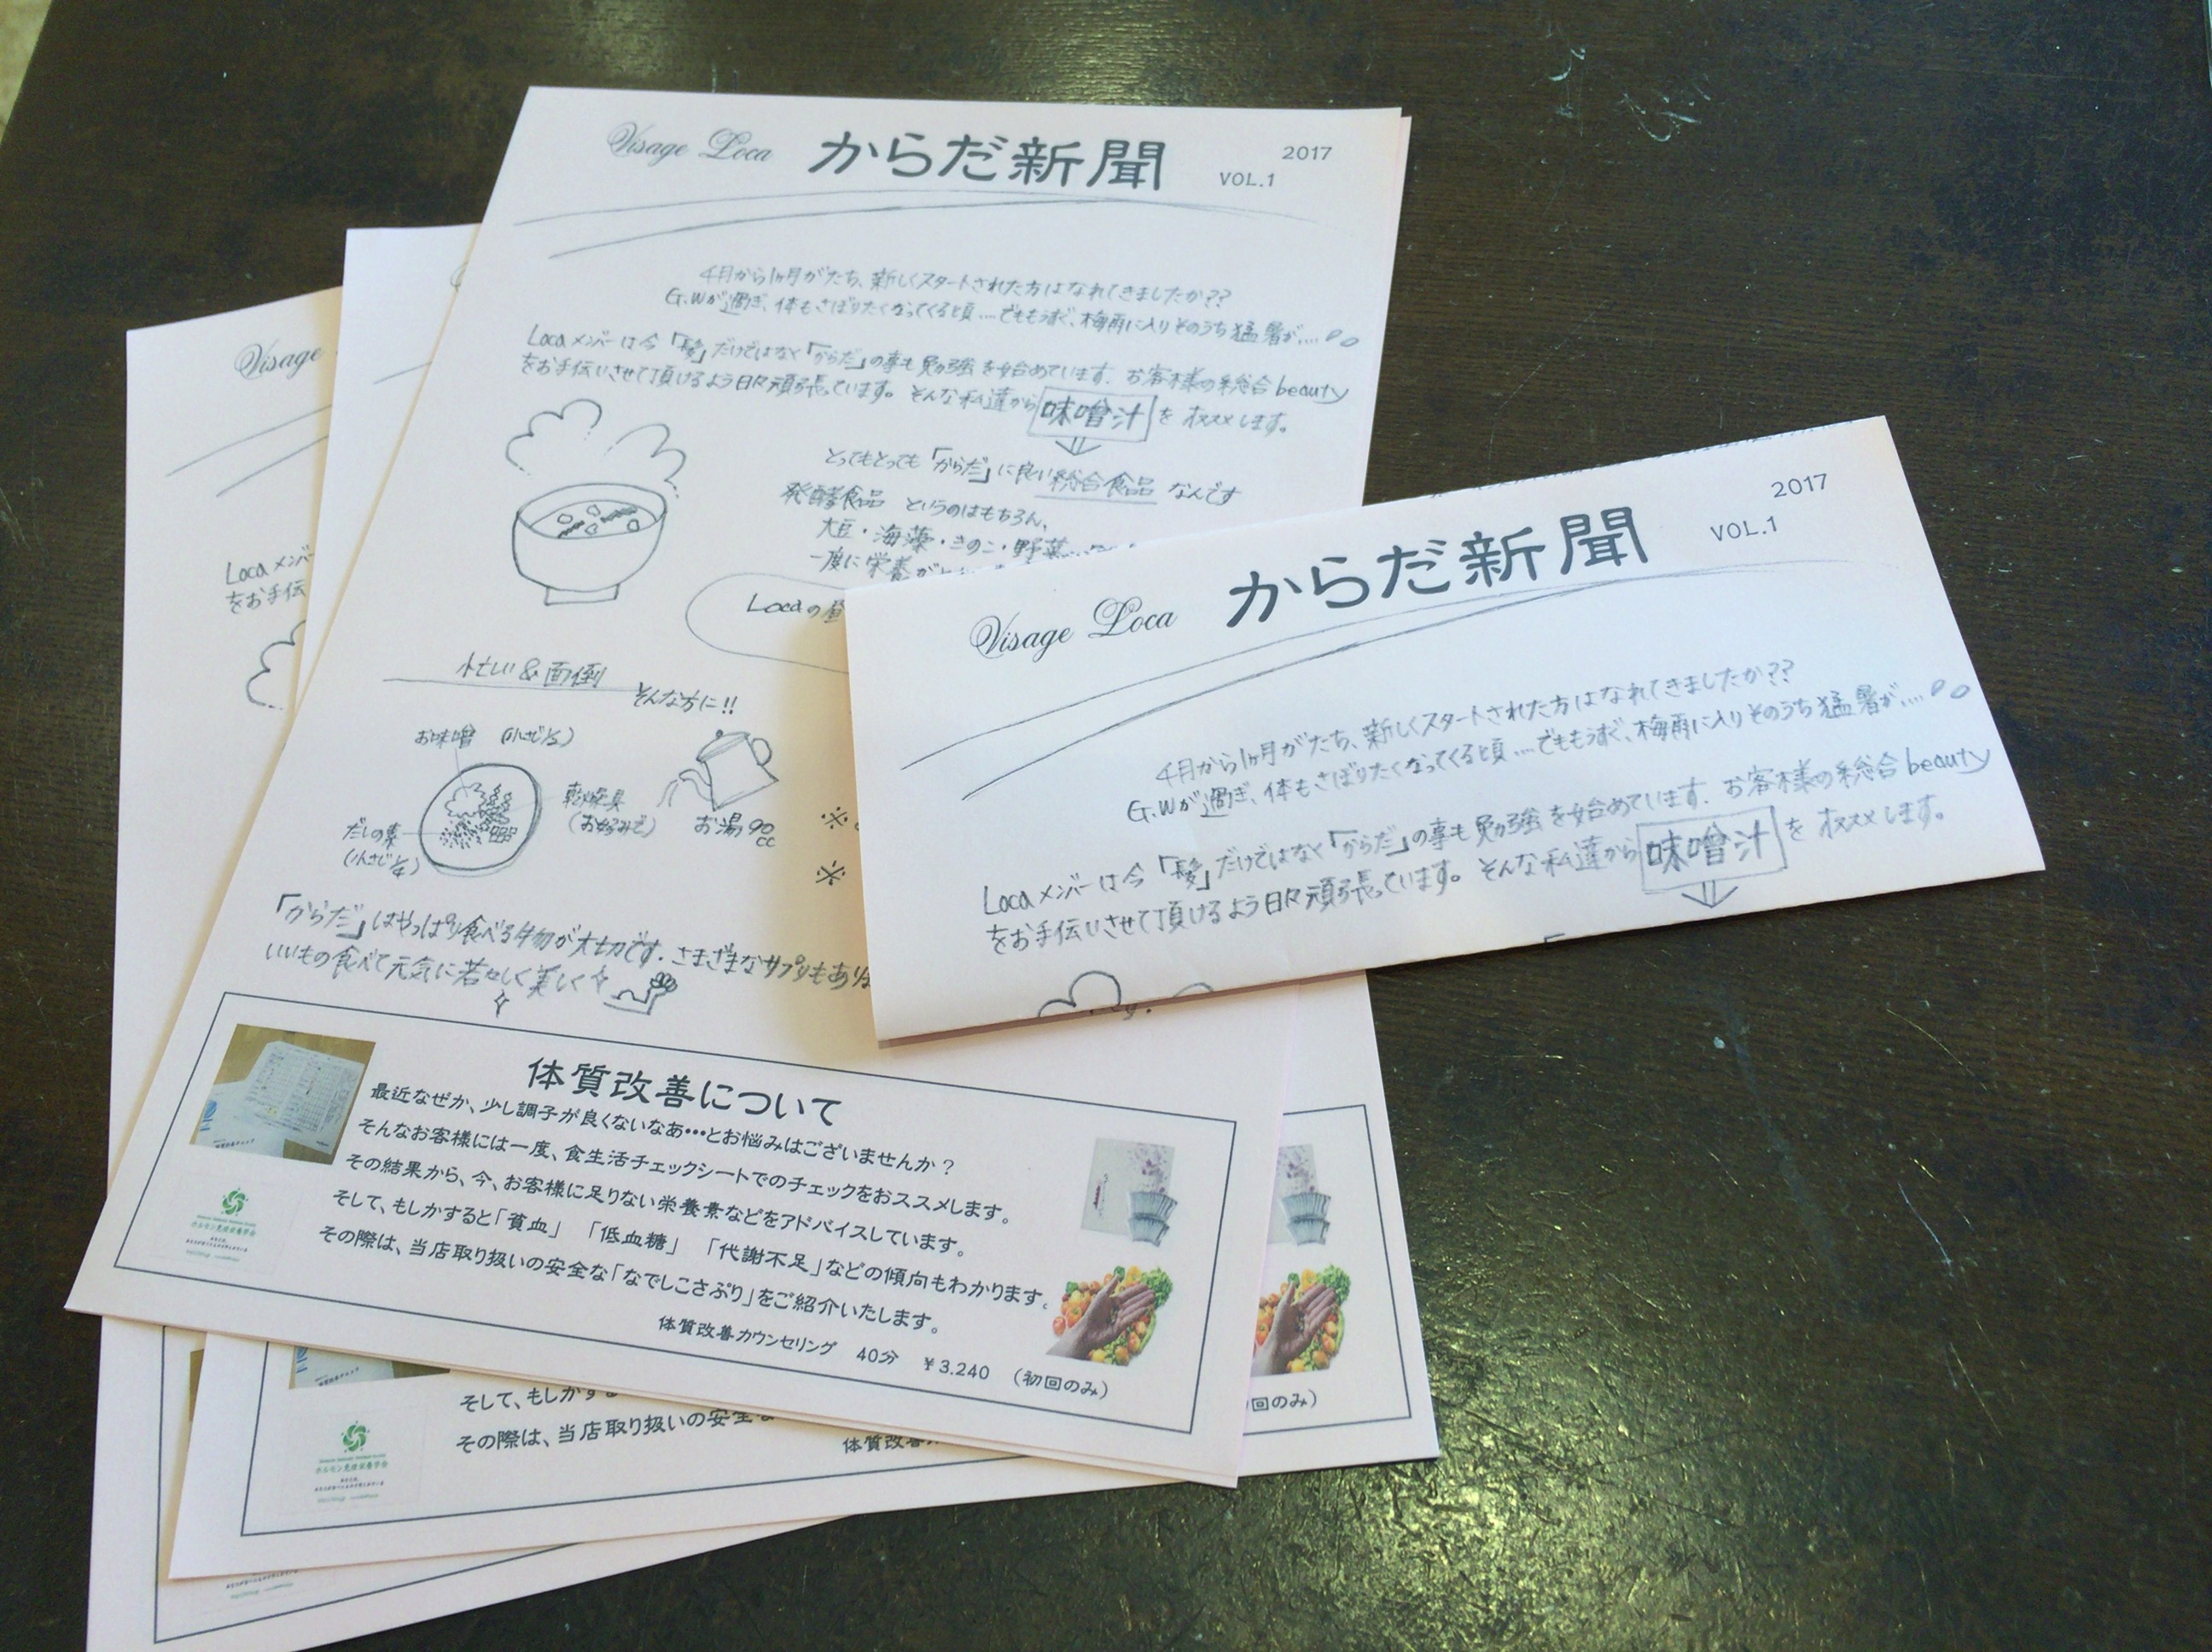 Visage Loca からだ新聞 VOL.1 2017
4月から1ヶ月がたち、新しくスタートされた方はなれてきましたか??
G.Wが過ぎ、体もさぼりたくなってくる頃....でももうすぐ、梅雨に入りそのうち猛暑が....
Locaメンバーは今「髪」だけではなく「からだ」の事も勉強を始めています. お客様の総合beauty
をお手伝いさせて頂けるよう日々頑張っています。そんな私達から味噌汁をオススメします。
とってもとっても「からだ」に良い総合食品なんです
発酵食品 というのはもちろん、
大豆・海藻・きのこ・野菜
一度に栄養が
Locaの昼
忙しい&面倒 そんな方に!!
お味噌 (小さじ1/2)
乾燥具
(お好みで)
お湯90cc
だしの素
(小さじ1/4)
※
※
「からだ」はやっぱり食べる物が大切です. さまざまなサプリもあり
いいもの食べて元気に若々しく美しく
体質改善について
最近なぜか、少し調子が良くないなあ•••とお悩みはございませんか?
そんなお客様には一度、食生活チェックシートでのチェックをおススメします。
その結果から、今、お客様に足りない栄養素などをアドバイスしています。
そして、もしかすると「貧血」 「低血糖」 「代謝不足」などの傾向もわかります。
その際は、当店取り扱いの安全な「なでしこさぷり」をご紹介いたします。
体質改善カウンセリング 40分 ¥3.240 (初回のみ)
ホルモン免疫栄養学会
Visage Loca からだ新聞 VOL.1 2017
4月から1ヶ月がたち、新しくスタートされた方はなれてきましたか??
G.Wが過ぎ、体もさぼりたくなってくる頃....でももうすぐ、梅雨に入りそのうち猛暑が....
Locaメンバーは今「髪」だけではなく「からだ」の事も勉強を始めています. お客様の総合beauty
をお手伝いさせて頂けるよう日々頑張っています。そんな私達から味噌汁をオススメします。
Visage
Locaメンバ
をお手伝
そして、もしかする
その際は、当店取り扱いの安全な
体質改善
回のみ)
ホルモン免疫栄養学会